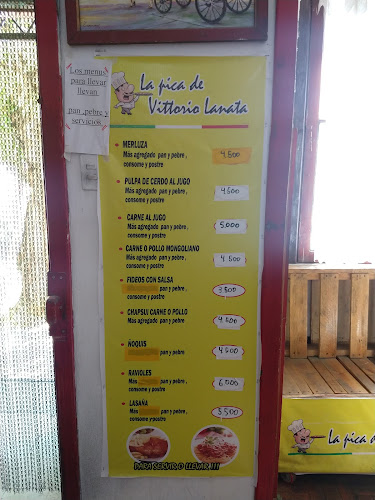 Los menus
para llevar
llevan
pan, pebre y
servicios
La pica de
Vittorio Lanata
MERLUZA
Más agregado pan y pebre,
consome y postre
4.800
PULPA DE CERDO AL JUGO
Mas agregado pan y pebre,
consome y postre
4.600
CARNE AL JUGO
Más agregado pan y pebre,
consome y postre
5.000
CARNE O POLLO MONGOLIANO
Más agregado pan y pebre,
consome y postre
4.500
FIDEOS CON SALSA
Más pan y pebre,
consome y postre
3.800
CHAPSUI CARNE O POLLO
Más agregado pan y pebre,
ÑOQUIS
Más pan y pebre,
consome y postre
4.500
RAVIOLES
Mas pan y pebre,
consome y postre
6.000
LASAÑA
Más pan y pebre,
consome y postre
5.500
PARA SERVIR O LLEVAR !!!
La pica d